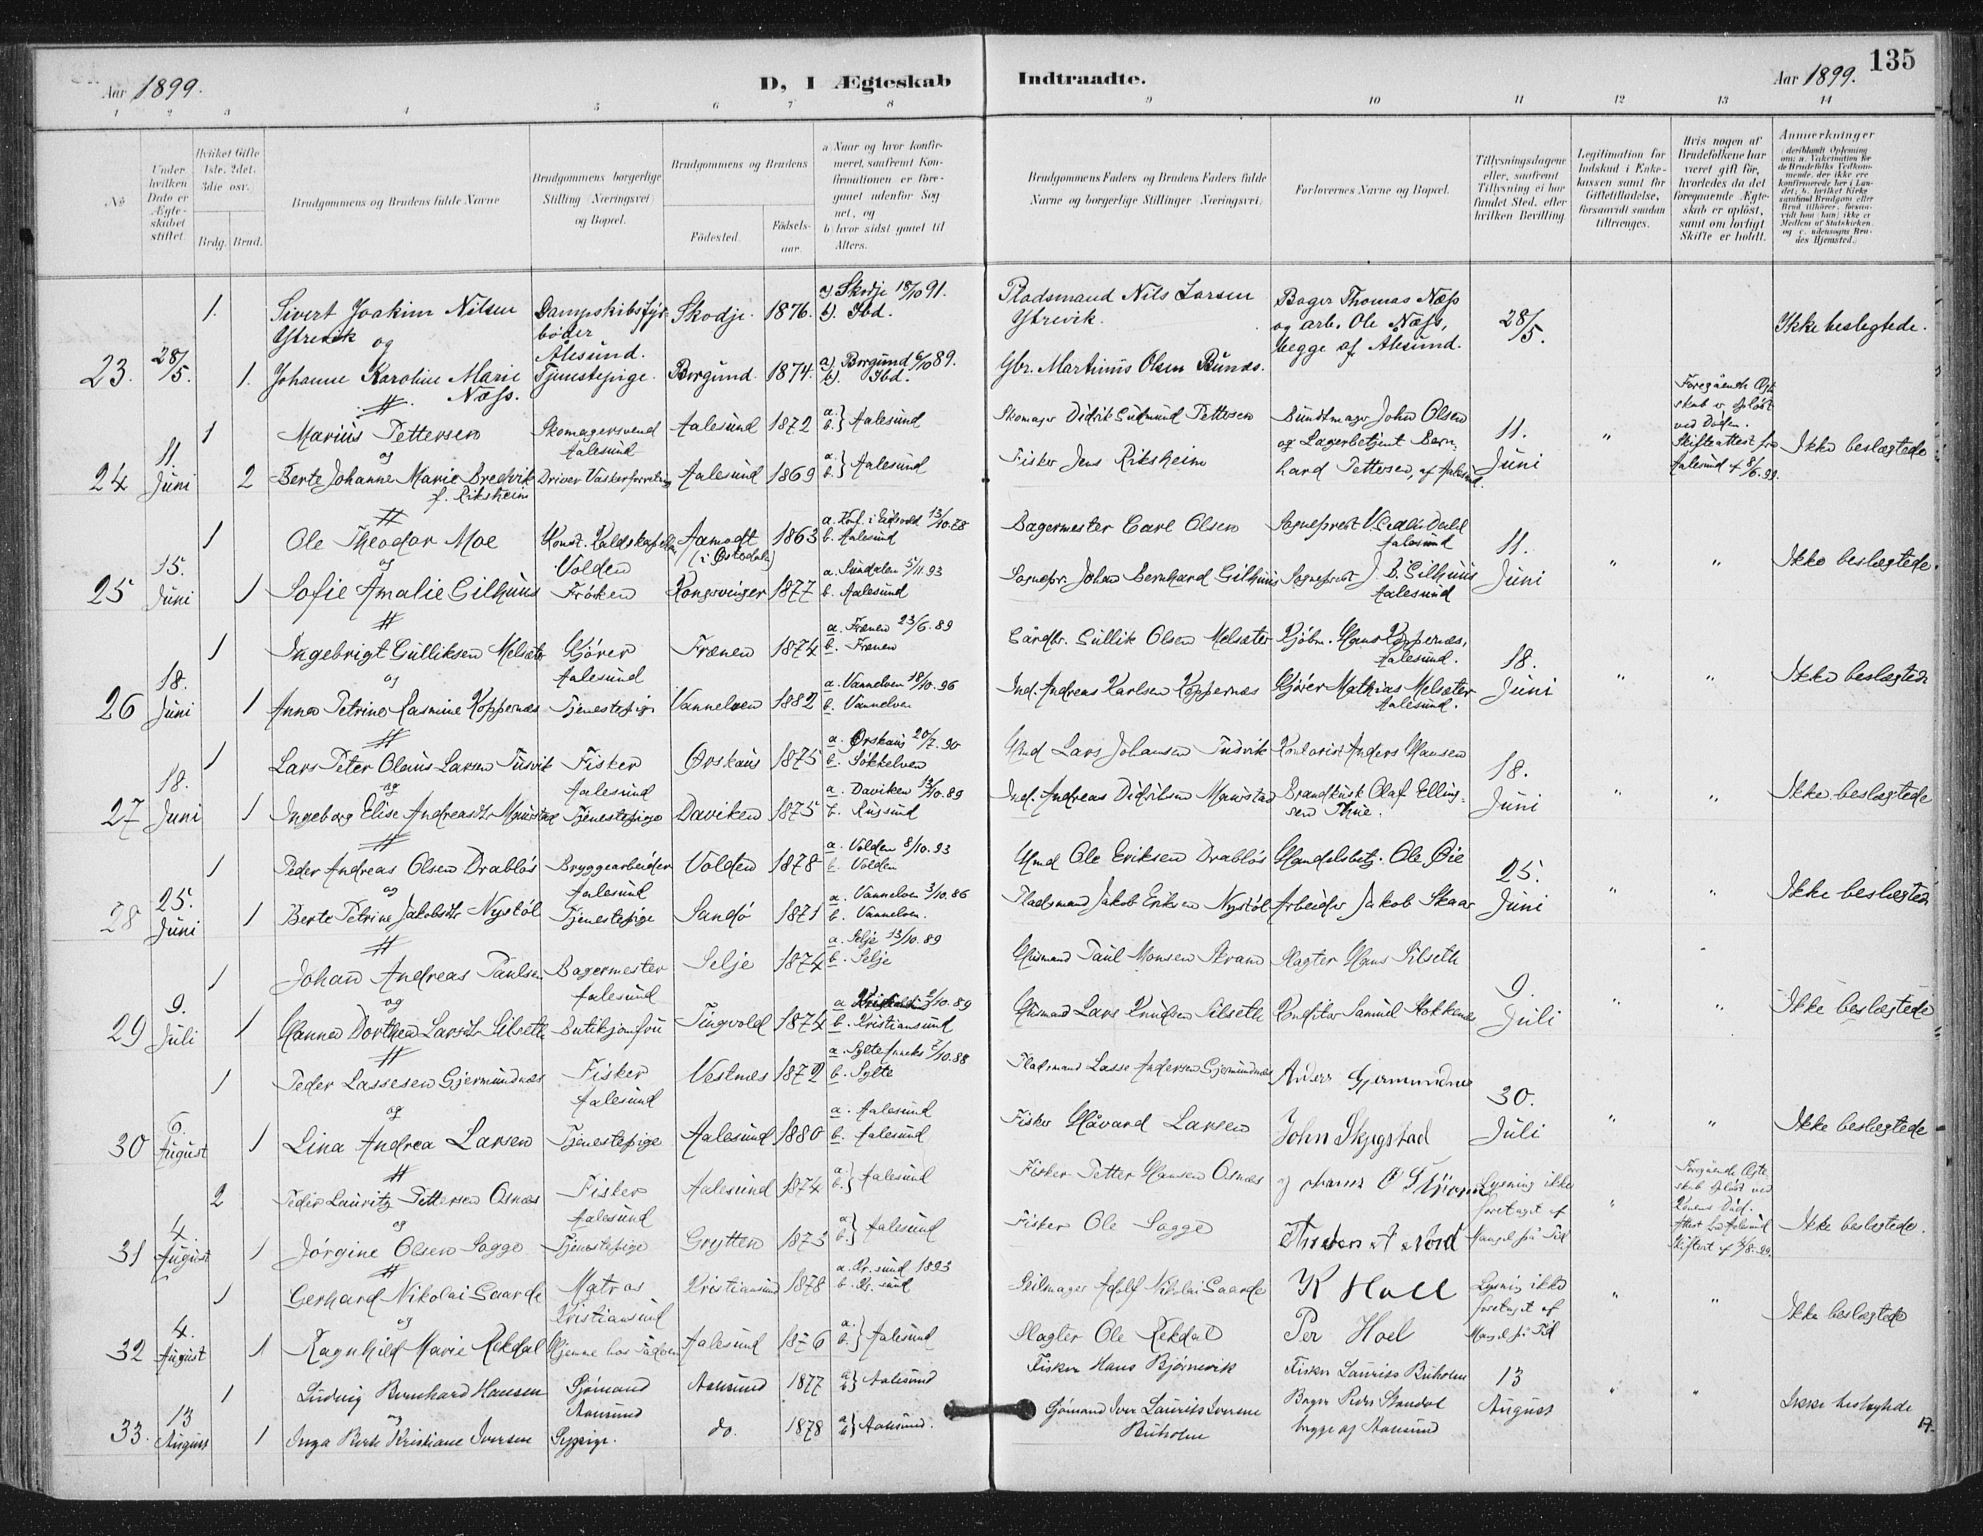 135
Aar 1899.
D, I Ægteskab Indtraadte.
Aar 1899.
1 2 3 4 5 6 7 8 9 10 11 12 13 14
No
Under hvilken Dato er Ægteskabet stiftet.
Hvilket Gifte 1ste, 2det, 3die osv.
Brdg. Brud.
Brudgommens og Brudens fulde Navne
Brudgommens borgerlige Stilling (Næringsvei) og Bopæl.
Brudgommens og Brudens
Fødested.
Fødselsaar.
a Naar og hvor konfirmeret, saafremt Konfirmationen er foregaaet udenfor Sognet, og
b hvor sidst gaaet til Alters.
Brudgommens Faders og Brudens Faders fulde Navne og borgerlige Stillinger (Næringsvei)
Forlovernes Navne og Bopæl.
Tillysningsdagene eller, saafremt Tillysning ei har fundet Sted, efter hvilken Bevilling.
Legitimation for Indskud i Enkekassen samt for Giftetilladelse, forsaavidt saadan tiltrænges.
Hvis nogen af Brudefolkene har været gift før, hvorledes da det foregaaende Ægteskab er opløst, samt om lovligt Skifte er holdt.
Anmerkninger
23. 28/5.
1. Sivert Joakim Nilsen Ytrevik og
Dampskibsfyrbøder Ålesund. Skodje. 1876. a) Skodje 18/10 91. b). Ibd.
Pladsmand Nils Larsen Ytrevik.
Bager Thomas Næss og arb. Ole Næss, begge af Ålesund.
28/5. Ikke beslegtede.
1. Johanne Karoline Marie Næss.
Tjenestepige. Borgund. 1874. a) Borgund 6/10 89. b). Ibd.
Gbr. Martinus Olsen Bunds.
24 11 Juni
1 Marius Pettersen og
Skomagersvend Aalesund Aalesund 1872 a. b. } Aalesund
Skomager Didrik Gudmund Pettersen
Buntmager John Olsen og Lagerbetjent Bernhard Pettersen, af Aalesund.
11. Juni "
Foregående Ægteskab er opløst ved Døden. Skifteattest fra Aalesund af 8/6. 99.
Ikke beslægtede
2 Berte Johanne Marie Bredvik f. Riksheim
Driver Vaskeforretning Aalesund 1869 a. b. } Aalesund
Fisker Jens Riksheim
25 15. Juni
1 Ole Theodor Moe og
Konst. Volden Aamodt (i Østerdalen) 1863 a. Konf. i Eidsvold 13/10.78 b. Aalesund
Bagermester Carl Olsen
Sogneprest Aalesund
11. Juni " " Ikke beslægtede.
1 Sofie Amalie Gilhuus
Frøken Kongsvinger 1877 a. Sundalen 5/11 93 b. Aalesund
Sognepr. Johan Bernhard Gilhuus
Sogneprest J. B. Gilhuus Aalesund
26 18. Juni
1 Ingebrigt Gulliksen Melsæter og
Gjører Aalesund Frænen 1874 a. Frænen 23/6. 89 b. Frænen
Gårdbr. Gullik Olsen Melsæter
Kjøbm. Hans Koppernæs, Aalesund.
18. Juni " " Ikke beslægtede
1 Anna Petrine Rasmine Koppernæs
Tjenestepige Vannelven 1882 a. Vannelven 18/10. 96 b. Vannelven
Ind. Andreas Karlsen Koppernæs
Gjører Mathias Melsæter Aalesund.
27 18. Juni
1 Lars Peter Olaus Larsen Tusvik og
Fisker Aalesund Ørskaug 1875 a. Ørskaug 20/7. 90 b. Søkkelven
Gmd Lars Johansen Tusvik
Kontorist Anders Hansen
18. Juni " " Ikke beslægtede
1 Ingeborg Elise Andreasdtr Maurstad
Tjenestepige Daviken 1875 a. Daviken 13/10.89 b. Rugsund
Ind. Andreas Didriksen Maurstad
Brandkusk Olaf Ellingsen Thue.
28 25. Juni
1 Peder Andreas Olsen Drabløs og
Bryggearbeider Aalesund Volden 1878 a. Volden 8/10.93 b. Volden
Gmd Ole Eriksen Drabløs
Handelsbetj. Ole Øie
25. Juni " " Ikke beslægtede
1 Berte Petrine Jakobsdtr Nystøl
Tjenestepige Sandø 1871 a. Vannelven 3/10.86 b. Vannelven.
Pladsmand Jakob Eriksen Nystøl
Arbeider Jakob Skaar
29 9. Juli
1 Johan Andreas Paulsen og
Bagermester Aalesund Selje 1874 a. Selje 13/10.89 b. Selje
Husmand Paul Monsen
Slagter Hans Silseth
9. Juli " " Ikke beslægtede
1 Hanna Dorthea Larsdtr Silseth
Butikjomfru Tingvold 1874 a. 2/10.89 b. Kristiansund
Husmand Lars Knudsen Silseth
Konditor Samuel
30 6. August
1 Peder Lassesen Gjermundnæs og
Fisker Aalesund Vestnæs 1872 a. Sylte Anneks 2/10.88 b. Sylte
Pladsmand Lasse Andersen Gjermundnæs
Anders Gjermundnes
30. Juli " " Ikke beslegtede
1 Lina Andrea Larsen
Tjenestepige Aalesund 1880 a. Aalesund b. Aalesund
Fisker Håvard Larsen
John Skjegstad
31 4. August
2 Peder Lauritz Pettersen Osnæs og
Fisker Aalesund Aalesund 1874 a. b. } Aalesund
Fisker Petter Hansen Osnæs
Lysning ikke foretaget af Mangel på Tid "
Foregående Ægteskab opløst ved Konens Død. Attest fra Aalesund Skifteret af 4/8. 99.
Ikke beslegtede.
1 Jørgine Olsen Sogge
Tjenestepige Grytten 1873 a. b. } Aalesund
Fisker Ole Sogge
32 4. August
1 Gerhard Nikolai Gaarde og
Matros Kristiansund Kristiansund 1878 a. Kr. sund 1893 b. Kr. sund
Seilmager Adolf Nikolai Gaarde
K Hoel
Lysning ikke foretaget af Mangel på Tid " " Ikke beslægtede
1 Ragnhild Marie Rekdal
Hjemme hos Faderen Aalesund 1876 a. b. } Aalesund
Slagter Ole Rekdal
Per Hoel
33. 13 August
1 Ludvig Bernhard Hansen og
Sjømand Aalesund Aalesund 1877 a b } Aalesund
Fisker Hans Bjørnevik
Fisker Laurits Buholm
13 August " " Ikke beslegtede
1 Inga Berte Kristiane Iversen
Sypige. do. 1878 a b } Aalesund.
Sjømand Iver Laurits Iversen Buholm
Bager Peder Standal begge af Aalesund